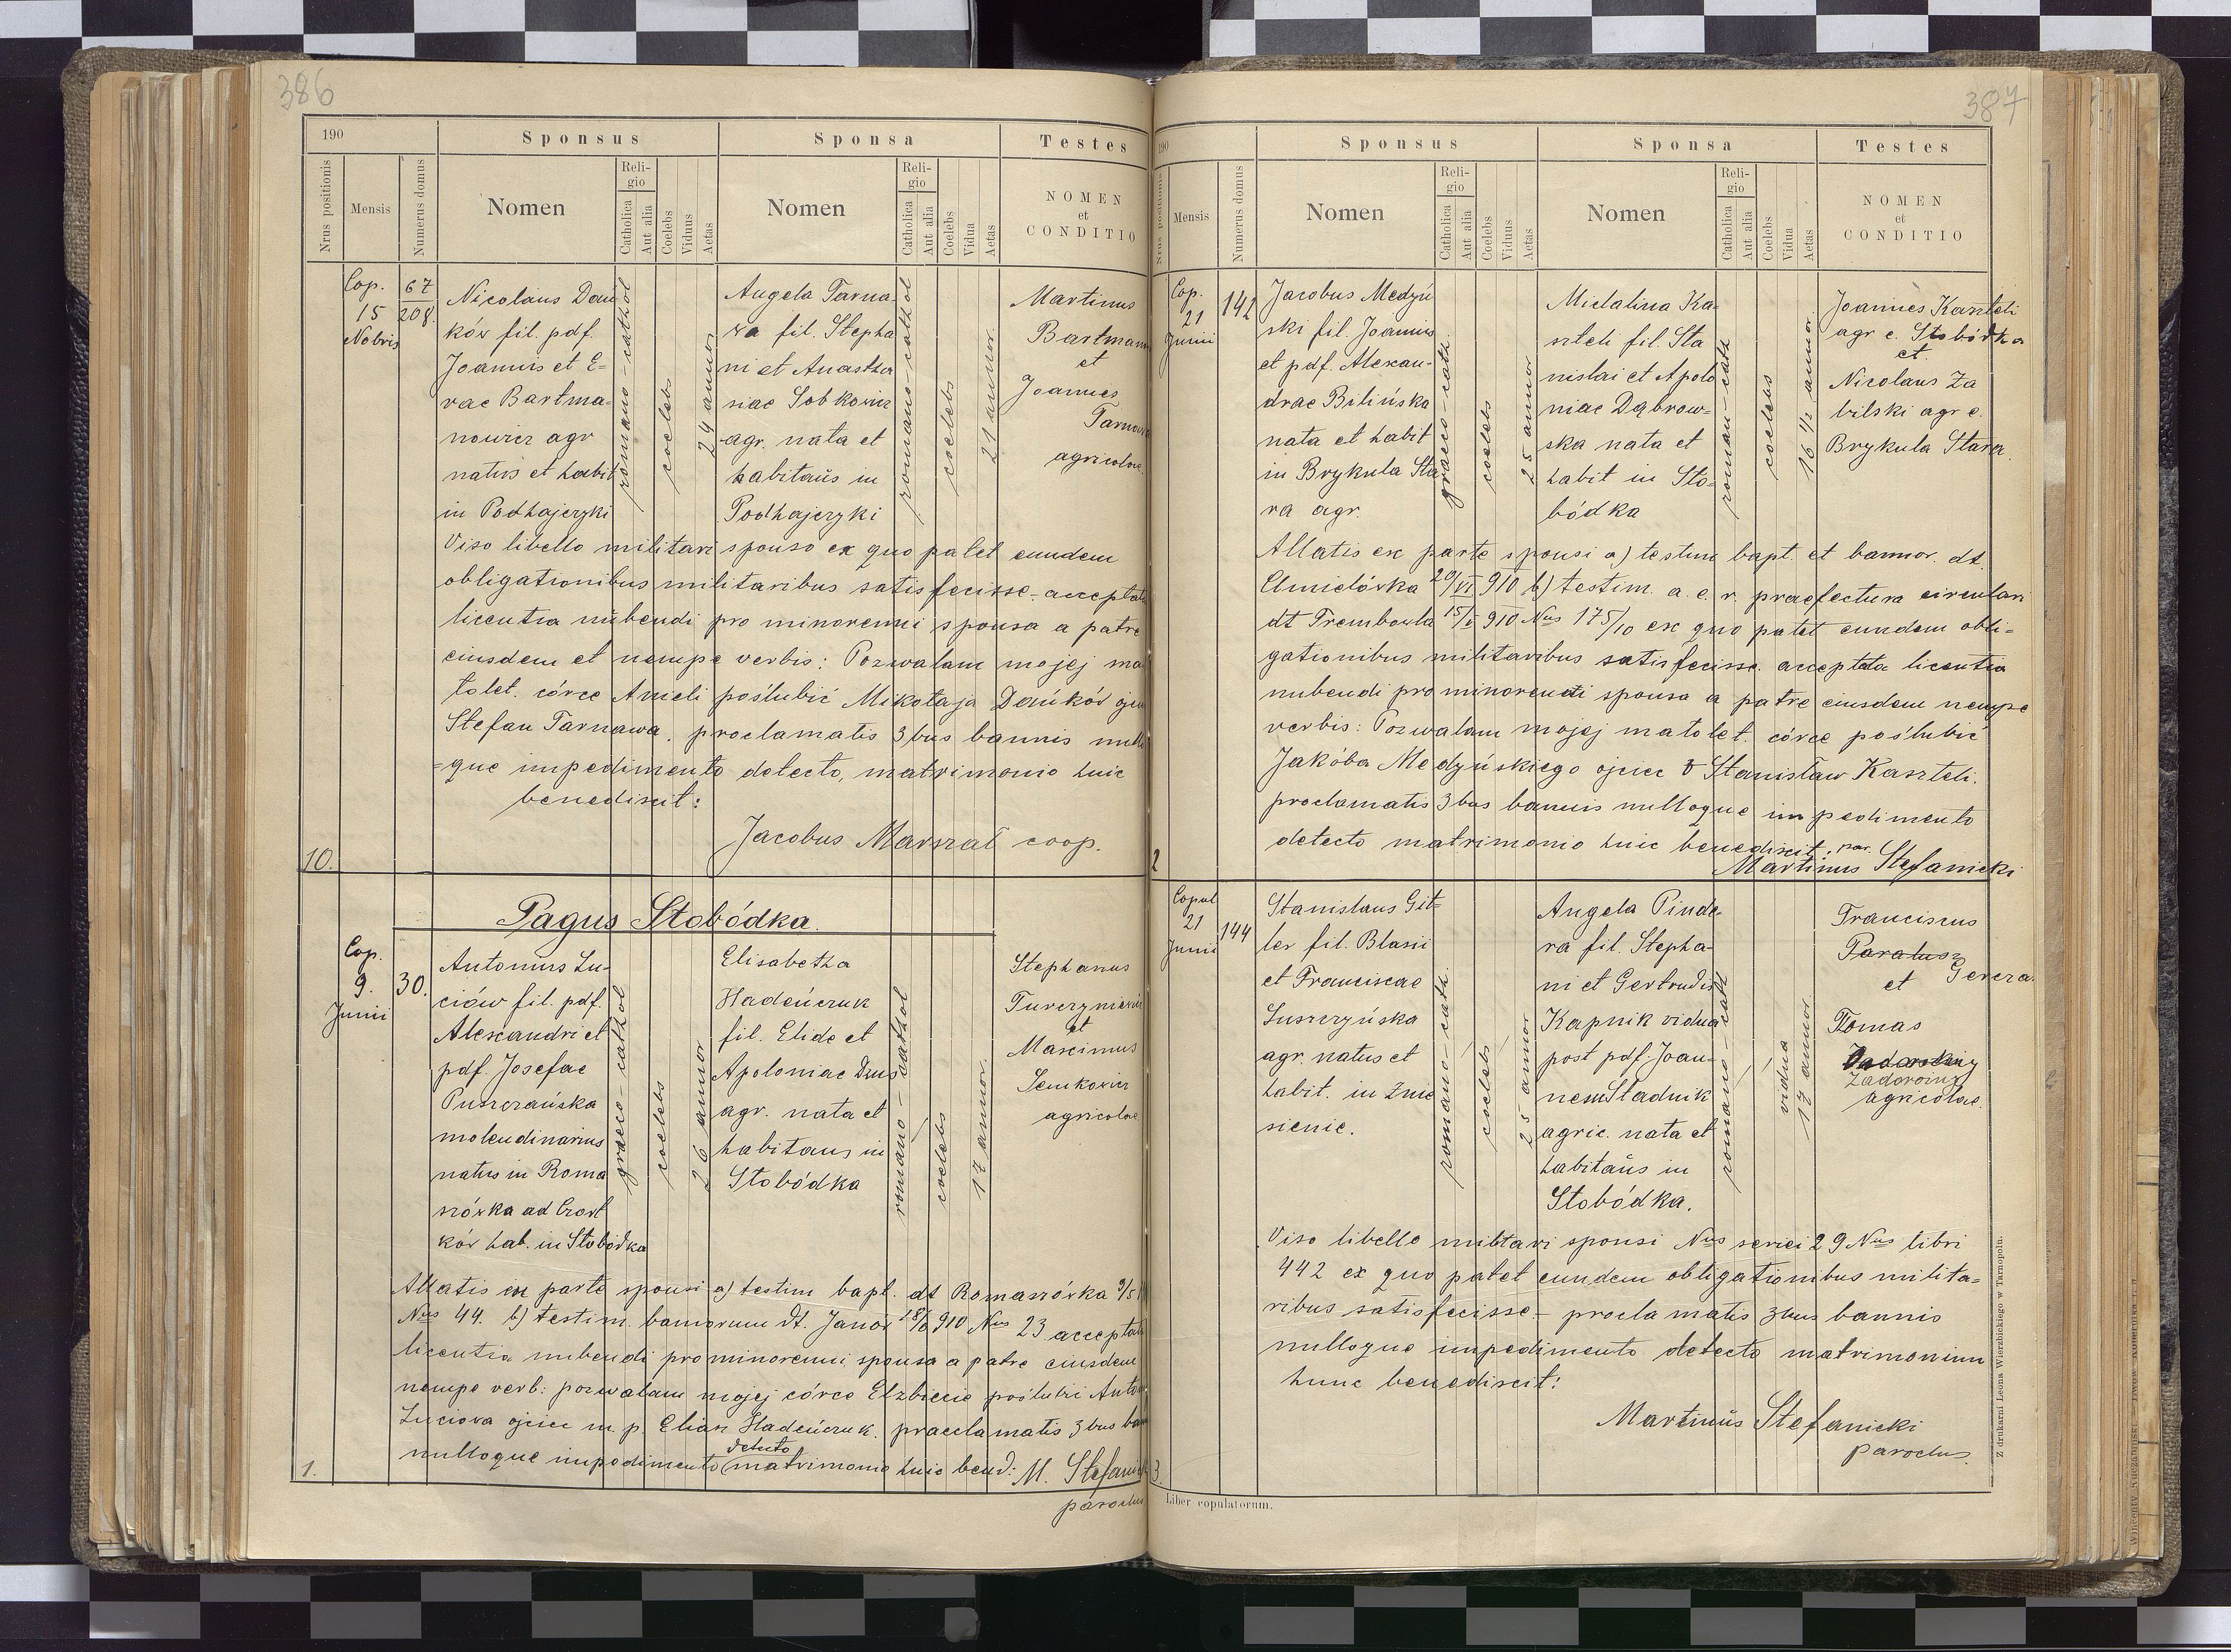 386
190
Sponsus
Sponsa
Testes
Nrus positionis
Mensis
Numerus domus
Nomen
Religio
Catholica
Aut alia
Coelebs
Viduus
Aetas
Nomen
Religio
Catholica
Aut alia
Coelebs
Vidua
Aetas
NOMEN
et
CONDITIO
10.
Cop.
15
Nobris
67
208.
Nicolaus Dań
ków fil. pdf.
Joannis et E-
vae Bartma-
nowicz agr
natus et habit
in Podhajczyki
romano-cathol
coelebs
24 annor
Angela Tarna-
wa fil. Stepha
ni et Anastha
siae Sobkowicz
agr. nata et
habitans in
Podhajczyki
romano-cathol
coelebs
21 annor.
Martinus
Bartman
et
Joannes
Tarnawa
agricolae.
Viso libello militari sponso ex quo patet eundem
obligationibus militaribus satisfecisse - accepta
licentia nubendi pro minorenni sponsa a patre
eiusdem et nempe verbis: Pozwalam mojej ma
łolet. córce Anieli poślubić Mikołaja Dańków ojci
Stefan Tarnawa, proclamatis 3bus bannis nullo
=que impedimento detecto, matrimonio huic
benedixit:
Jacobus Marszał coop.
Pagus Słobódka.
1.
Cop.
9.
Junii
30.
Antonius Lu-
ciów fil. pdf.
Alexandri et
pdf. Josefae
Puszczańska
molendinarius
natus in Roma
szówka ad Czort
ków hab. in Słobódka
graeco-cathol
coelebs
26 annor
Elisabetha
Hadeńczuk
fil. Elide et
Apoloniae Dzus
agr. nata et
habitans in
Słobódka
romano-cathol
coelebs
17 annor.
Stephanus
Turczyniewicz
et
Maximus
Semkowicz
agricolae
Allatis ex parte sponsi a) testim bapt. dt Romaszówka 9/5
Nus 44. b) testim. bannorum dt. Janów 18/6 910 Nus 23 accepta
licentia nubendi pro minorenni sponsa a patre eiusdem
nempe verb: pozwalam mojej córce Elżbiecie poślubić Anton
Luciowa ojciec m. p. Eliasz Hadeńczuk. praeclamatis 3bus ban
nulloque impedimento detecto matrimonio huic bend: M. Stefanicki
parochus
387
190
Sponsus
Sponsa
Testes
Nrus positionis
Mensis
Numerus domus
Nomen
Religio
Catholica
Aut alia
Coelebs
Viduus
Aetas
Nomen
Religio
Catholica
Aut alia
Coelebs
Vidua
Aetas
NOMEN
et
CONDITIO
2
Cop.
21
Junii
142
Jacobus Medyń
ski fil. Joannis
et pdf. Alexan-
drae Bilińska
nata et habit
in Brykula Sta
ra agr.
graeco-cath.
coelebs
25 annor
Michalina Ka-
szteli fil. Sta
nislai et Apolo
niae Dąbrow=
ska nata et
habit in Sło-
bódka
roman-cath
coelebs
16 1/2 annor.
Joannes Kaszteli
agr e. Słobódka
et
Nicolaus Za
bilski agr e.
Brykula Stara.
Allatis ex parte sponsi a) testim bapt. et bannor. dt.
Chmielówka 20/VI 910 b) testim. a. c. r. praefectura circulari
dt Trembowla 15/V 910 Nus 175/10 ex quo patet eundem obli=
gationibus militaribus satisfecisse. acceptata licentia
nubendi pro minorenni sponsa a patre eiusdem nempe
verbis: Pozwalam mojej małolet. córce poślubić
Jakóba Medyńskiego ojciec Stanisław Kaszteli.
proclamatis 3bus bannis nulloque impedimento
detecto matrimonio huic benedixit: par.
Martinus Stefanicki
3
Copul
21
Junii
144
Stanislaus Git=
ler fil. Blasii
et Franciscae
Luszczyńska
agr. natus et
habit. in Źnie
sienie.
romano-cath.
coelebs
25 annor
Angela Pinde-
ra fil. Stepha-
ni et Gertrudis
Kapnik vidua
post pdf. Joan-
nem Stadnik
agric. nata et
habitans in
Słobódka.
romano-cath
vidua
17 annor.
Franciscus
Paratusz
Gerera
et
Tomas
Zadorożny
agricolae.
Viso libello militari sponsi Nus seriei 29 Nus libri
442 ex quo patet eundem obligationibus milita=
ribus satisfecisse - proclamatis 3bus bannis
nulloque impedimento detecto matrimonium
hunc benedixit:
Martinus Stefanicki
parochus.
Liber copulatorum.
Z drukarni Leona Wierzbickiego w Tarnopolu.